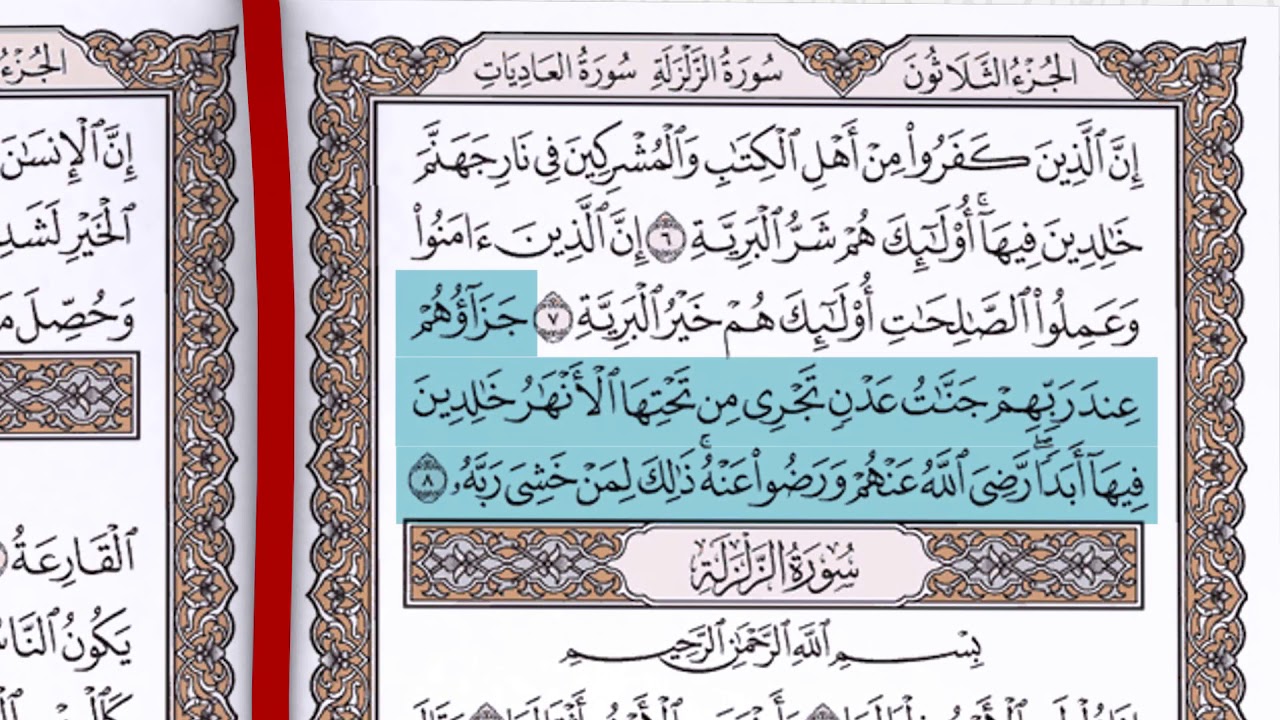 الجُزْءُ الثَّلَاثُونَ سُورَةُ الزَّلْزَلَةِ سُورَةُ العَادِيَاتِ
إِنَّ ٱلَّذِينَ كَفَرُواْ مِنْ أَهْلِ ٱلْكِتَٰبِ وَٱلْمُشْرِكِينَ فِى نَارِ جَهَنَّمَ
خَٰلِدِينَ فِيهَآۚ أُوْلَٰٓئِكَ هُمْ شَرُّ ٱلْبَرِيَّةِ ٦ إِنَّ ٱلَّذِينَ ءَامَنُواْ
وَعَمِلُواْ ٱلصَّٰلِحَٰتِ أُوْلَٰٓئِكَ هُمْ خَيْرُ ٱلْبَرِيَّةِ ٧ جَزَآؤُهُمْ
عِندَ رَبِّهِمْ جَنَّٰتُ عَدْنٍ تَجْرِى مِن تَحْتِهَا ٱلْأَنْهَٰرُ خَٰلِدِينَ
فِيهَآ أَبَدًاۖ رَّضِىَ ٱللَّهُ عَنْهُمْ وَرَضُواْ عَنْهُۚ ذَٰلِكَ لِمَنْ خَشِىَ رَبَّهُۥ ٨
سُورَةُ الزَّلْزَلَةِ
بِسْمِ ٱللَّهِ ٱلرَّحْمَٰنِ ٱلرَّحِيمِ
الجُزْءُ
إِنَّ ٱلْإِنسَٰنَ
ٱلْخَيْرِ لَشَدِ
وَحُصِّلَ مَ
ٱلْقَارِعَةُ
يَكُونُ ٱلنَّا